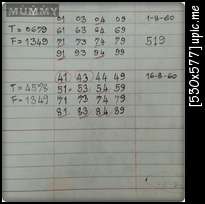 MUMMY
01 03 04 09 1-8-60
T = 0679 61 63 64 69
F = 1349 71 73 74 79 519
91 93 94 99
41 43 44 49 16-8-60
T = 4578 51 53 54 59
F = 1349 71 73 74 79
81 83 84 89
[530x577]upic.me